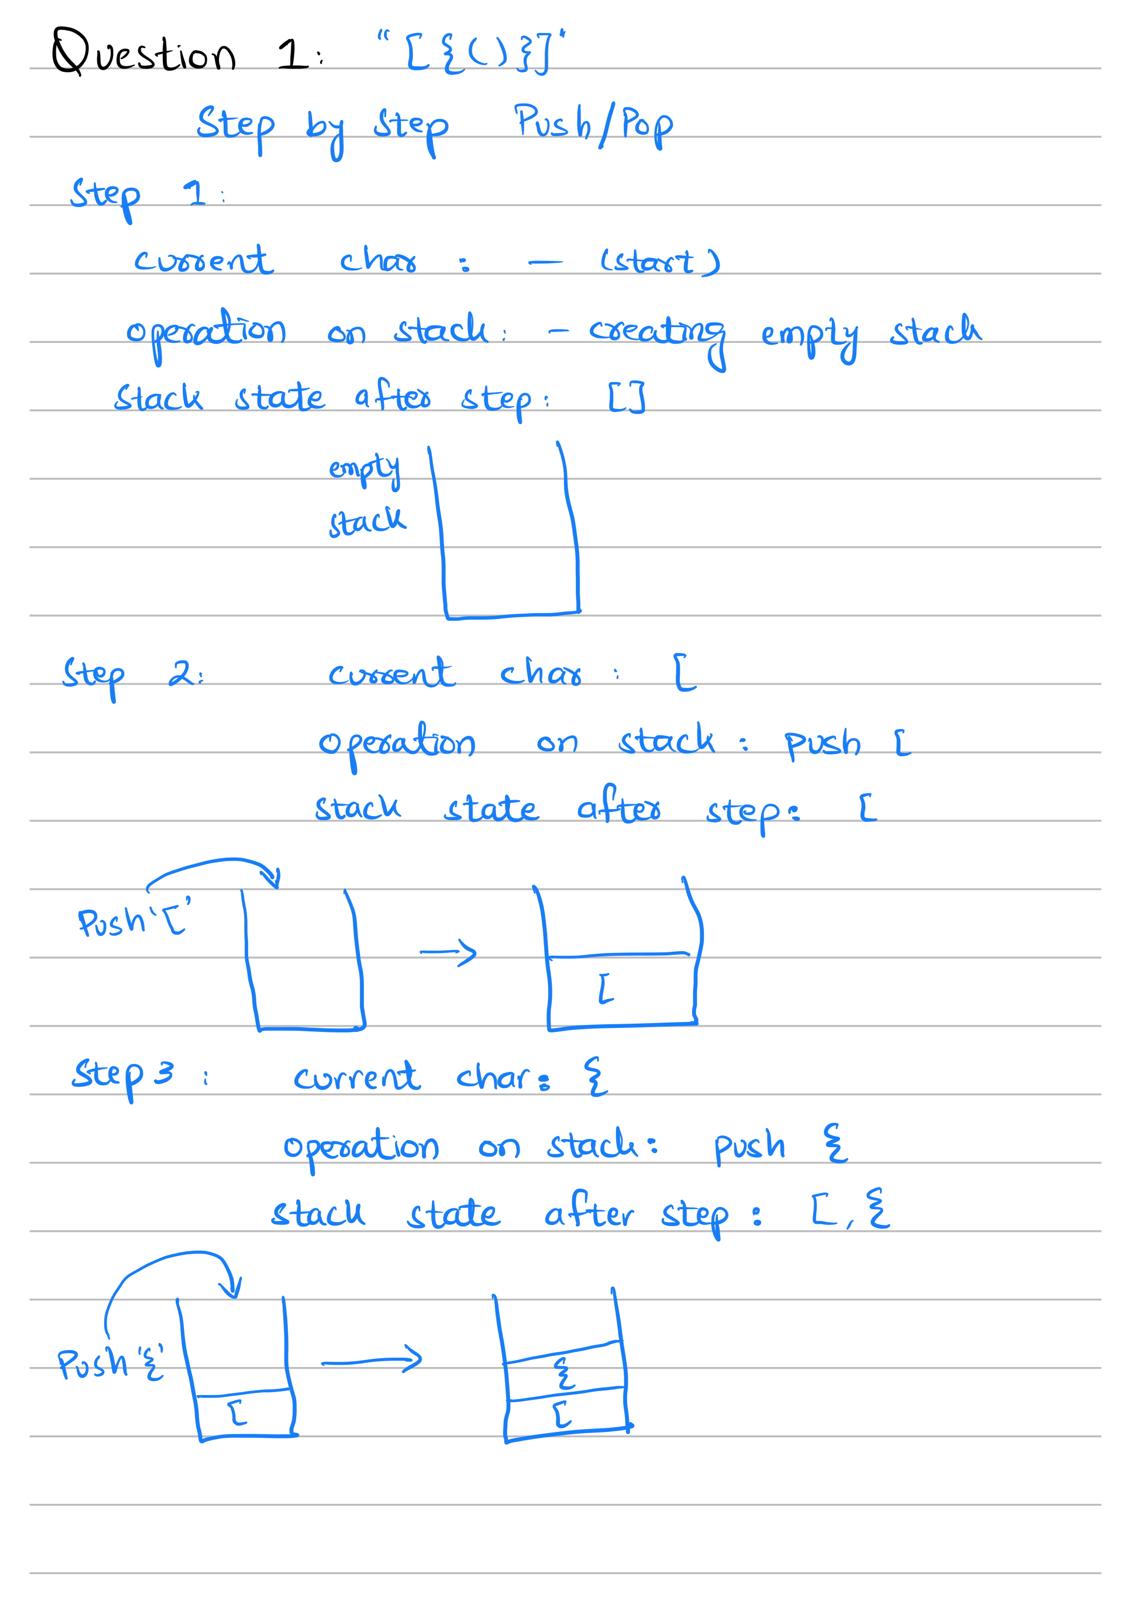 Question 1: "[{()}]"
Step by Step Push/Pop
Step 1:
current char : — (start)
operation on stack: - creating empty stack
stack state after step: []
empty
stack
Step 2: current char : [
operation on stack : push [
stack state after step: [
Push '['
[
Step 3 : current char: {
operation on stack: push {
stack state after step : [, {
Push '{'
{
[ [